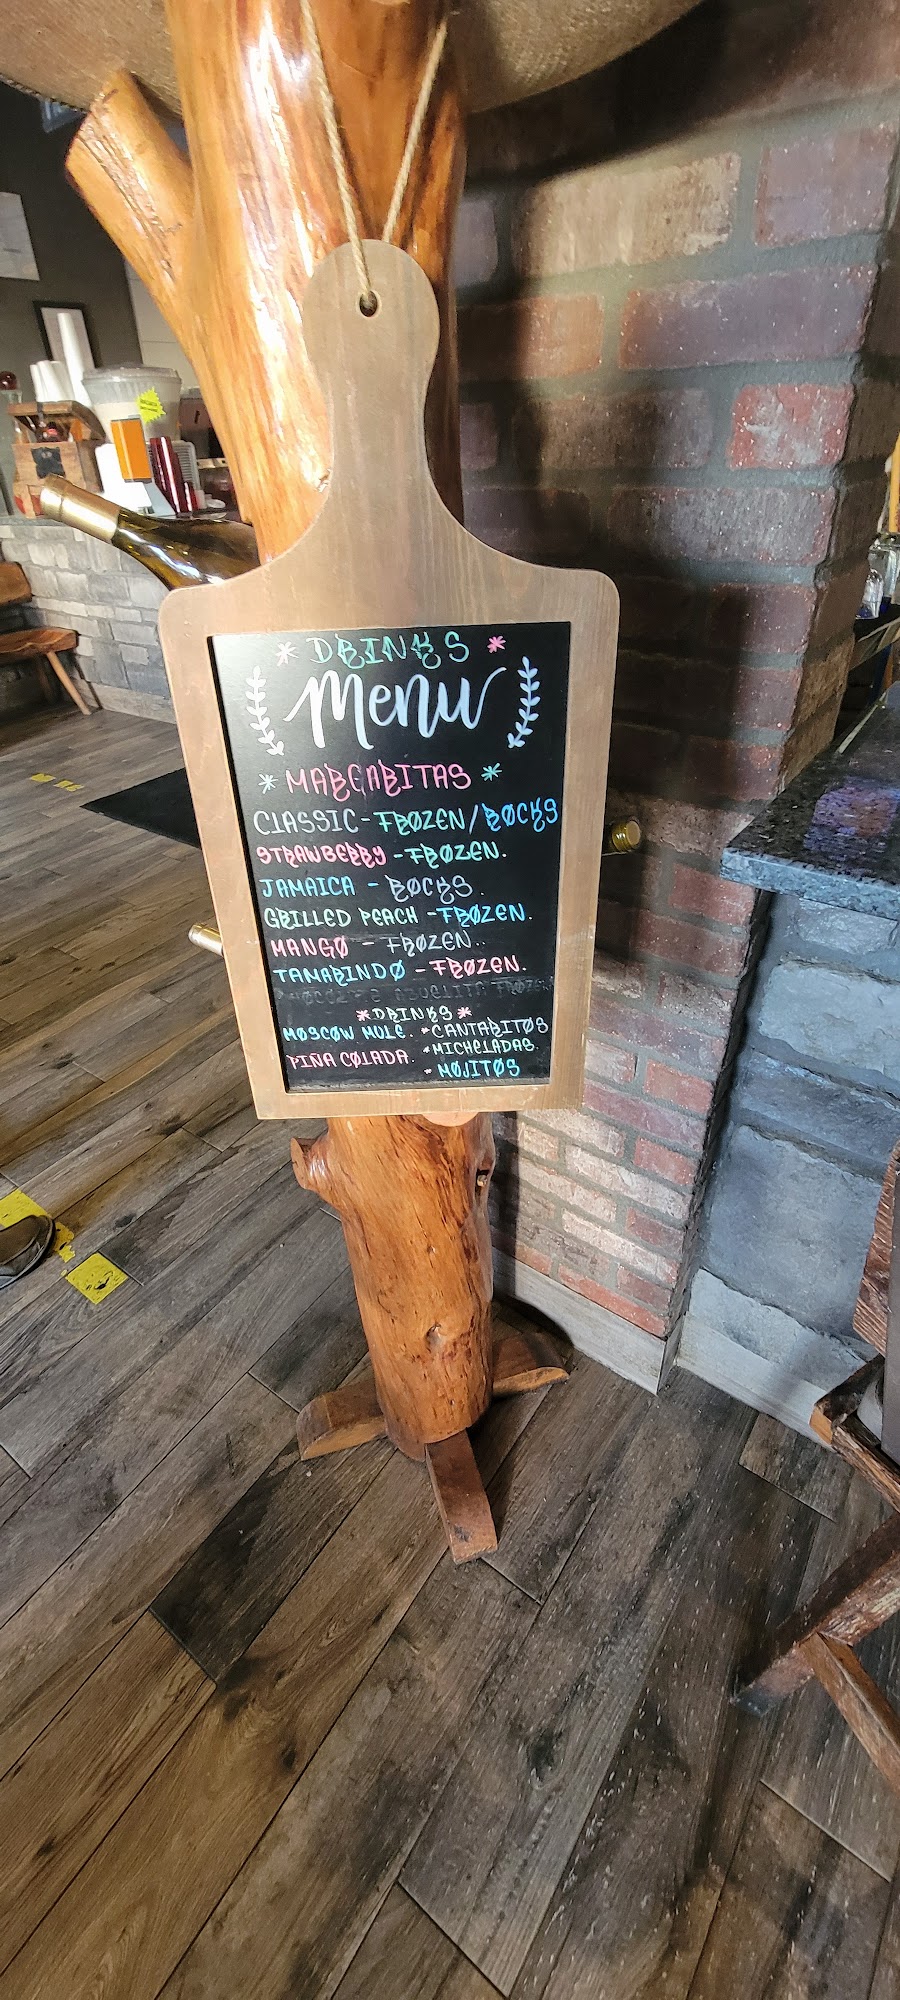 * DRINKS *
Menu
* MARGARITAS *
CLASSIC - FRØZEN / RØCKS
STRAWBERRY - FRØZEN.
JAMAICA - RØCKS.
GRILLED PEACH - FRØZEN.
MANGØ - FRØZEN..
TAMARINDØ - FRØZEN.
FRØZEN
* DRINKS *
MØSCØW MULE. * CANTARITØS
PIÑA CØLADA. * MICHELADAS.
* MØJITØS